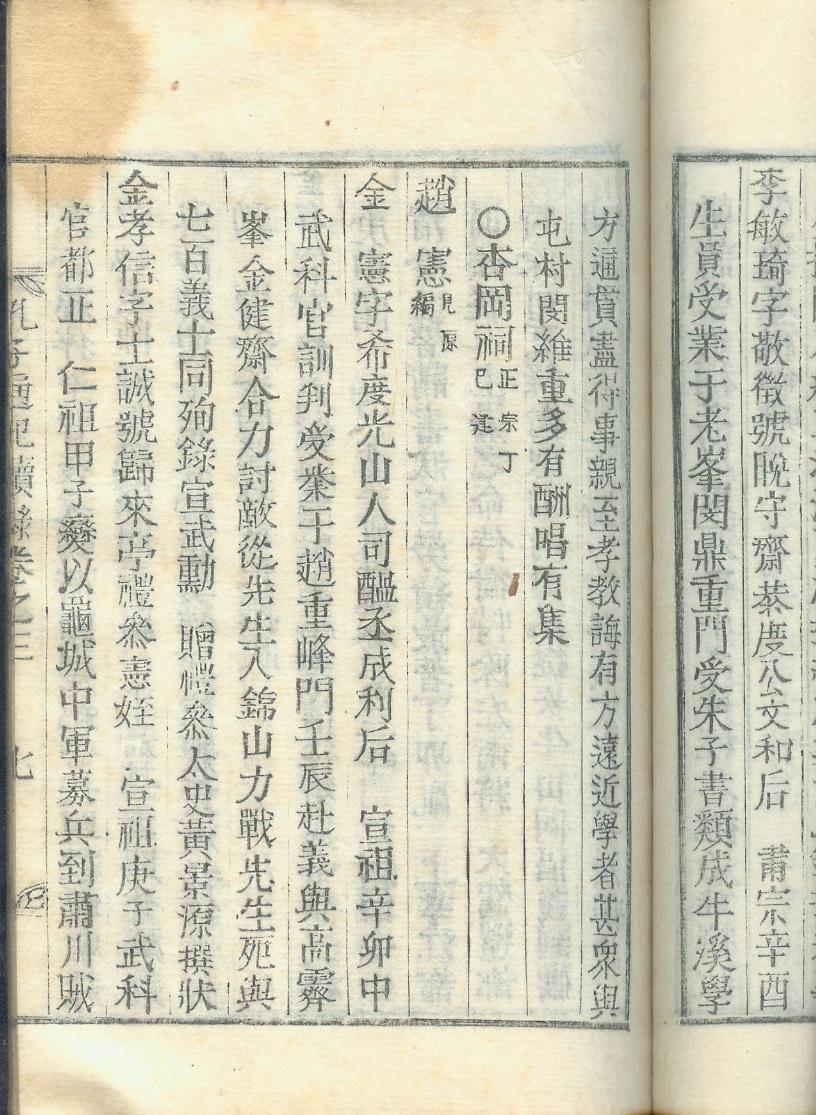 李敏琦字敬徵號脫守齋恭度公文和后 肅宗辛酉
生員受業于老峯閔鼎重門受朱子書類成牛溪學
方通貫盡得事親至孝教誨有方遠近學者甚衆與
屯村閔維重多有酬唱有集
○杏岡祠正宗丁巳建
趙 憲見原編
金 憲字希度光山人司醞丞成利后 宣祖辛卯中
武科官訓判受業于趙重峰門壬辰赴義與高霽
峯金健齋合力討敵從先生入錦山力戰先生死與
七百義士同殉錄宣武勳 贈禮叅太史黃景源撰狀
金孝信字士誠號歸來亭禮叅憲姪 宣祖庚子武科
官都正 仁祖甲子變以龜城中軍募兵到肅川賊
孔子通紀續錄卷之三 七